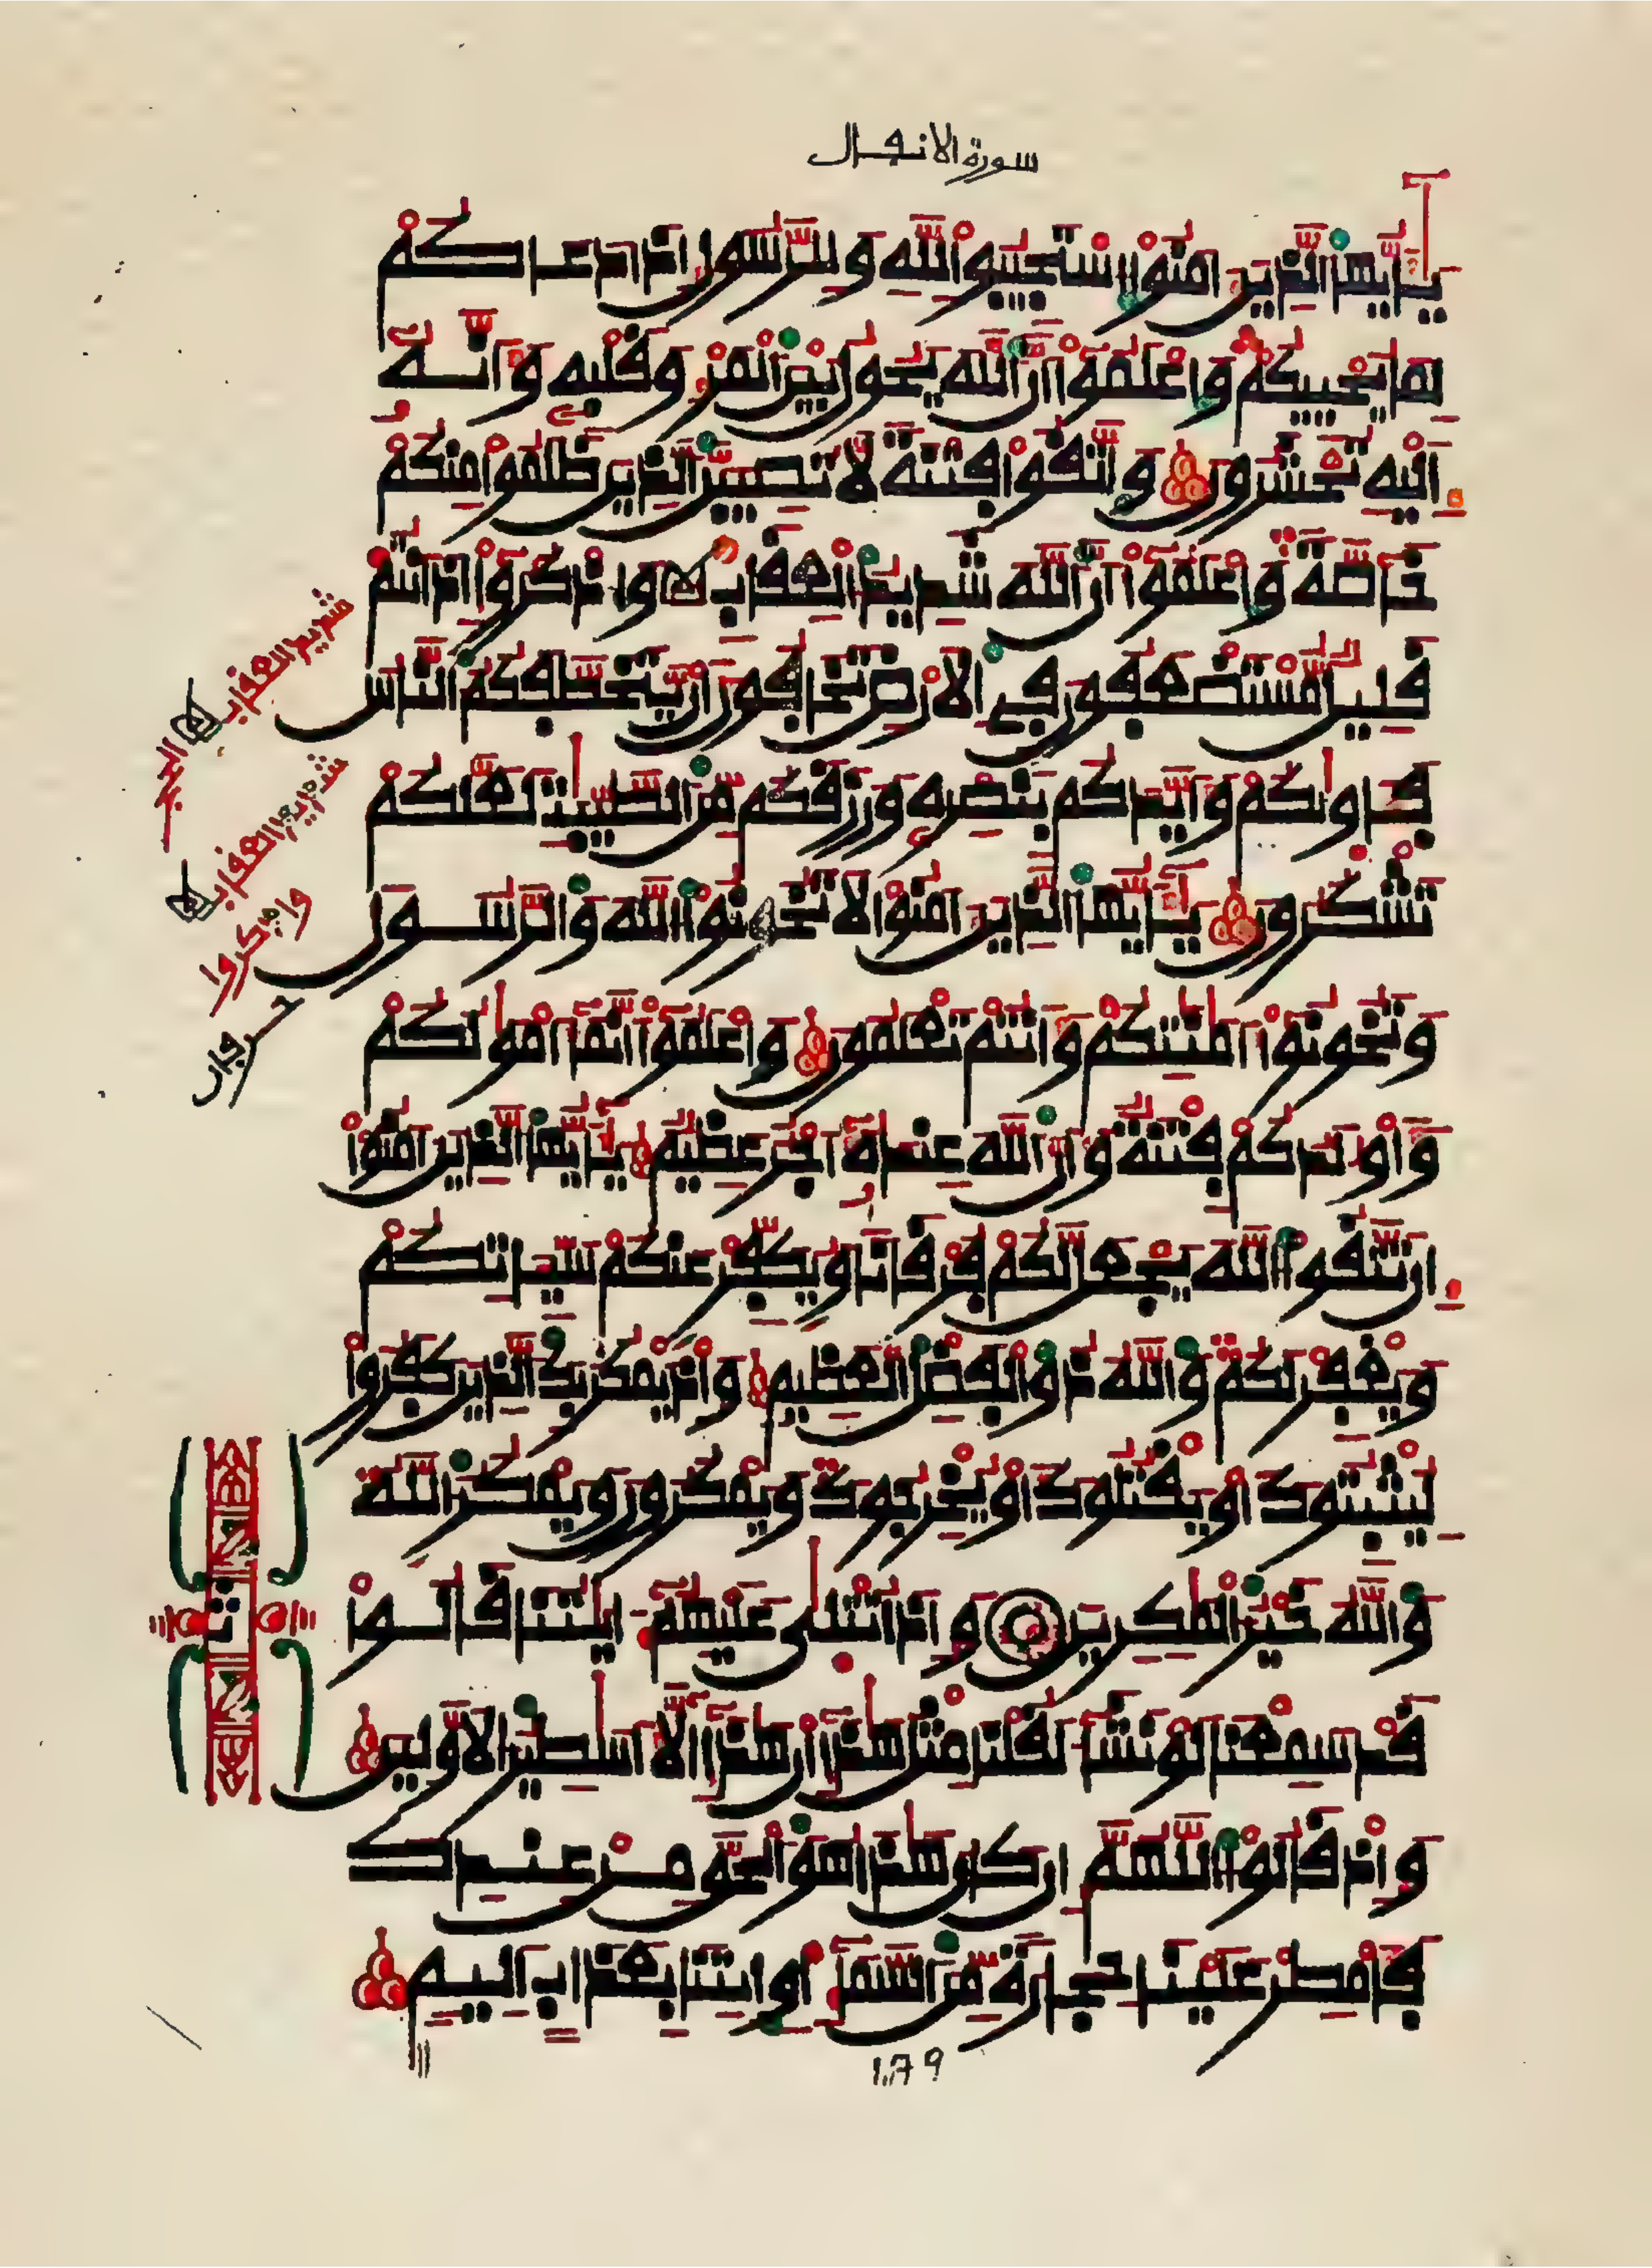 سورة الانفال
يَٰأَيُّهَا الذِينَ ءَامَنُوا اسْتَجِيبُوا لِلهِ وَلِلرَّسُولِ إِذَا دَعَاكُمْ
لِمَا يُحْيِيكُمْ وَاعْلَمُوا أَنَّ اللهَ يَحُولُ بَيْنَ الْمَرْءِ وَقَلْبِهِ وَأَنَّهُ
إِلَيْهِ تُحْشَرُونَ وَاتَّقُوا فِتْنَةً لَا تُصِيبَنَّ الذِينَ ظَلَمُوا مِنكُمْ
خَاصَّةً وَاعْلَمُوا أَنَّ اللهَ شَدِيدُ الْعِقَابِ وَاذْكُرُوا إِذْ أَنتُمْ
قَلِيلٌ مُّسْتَضْعَفُونَ فِي الْأَرْضِ تَخَافُونَ أَنْ يَّتَخَطَّفَكُمُ النَّاسُ
فَـَٔاوَىٰكُمْ وَأَيَّدَكُم بِنَصْرِهِ وَرَزَقَكُم مِّنَ الطَّيِّبَٰتِ لَعَلَّكُمْ
تَشْكُرُونَ يَٰأَيُّهَا الذِينَ ءَامَنُوا لَا تَخُونُوا اللهَ وَالرَّسُولَ
وَتَخُونُوا أَمَٰنَٰتِكُمْ وَأَنتُمْ تَعْلَمُونَ وَاعْلَمُوا أَنَّمَا أَمْوَٰلُكُمْ
وَأَوْلَٰدُكُمْ فِتْنَةٌ وَأَنَّ اللهَ عِندَهُ أَجْرٌ عَظِيمٌ يَٰأَيُّهَا الذِينَ ءَامَنُوا
إِن تَتَّقُوا اللهَ يَجْعَل لَّكُمْ فُرْقَانًا وَيُكَفِّرْ عَنكُمْ سَيِّـَٔاتِكُمْ
وَيَغْفِرْ لَكُمْ وَاللهُ ذُو الْفَضْلِ الْعَظِيمِ وَإِذْ يَمْكُرُ بِكَ الذِينَ كَفَرُوا
لِيُثْبِتُوكَ أَوْ يَقْتُلُوكَ أَوْ يُخْرِجُوكَ وَيَمْكُرُونَ وَيَمْكُرُ اللهُ
وَاللهُ خَيْرُ الْمَٰكِرِينَ وَإِذَا تُتْلَىٰ عَلَيْهِمْ ءَايَٰتُنَا قَالُوا
قَدْ سَمِعْنَا لَوْ نَشَاءُ لَقُلْنَا مِثْلَ هَٰذَا إِنْ هَٰذَا إِلَّا أَسَٰطِيرُ الْأَوَّلِينَ
وَإِذْ قَالُوا اللَّهُمَّ إِن كَانَ هَٰذَا هُوَ الْحَقَّ مِنْ عِندِكَ
فَأَمْطِرْ عَلَيْنَا حِجَارَةً مِّنَ السَّمَاءِ أَوِ ائْتِنَا بِعَذَابٍ أَلِيمٍ
شديد العقاب
شديد العقاب
واذكروا
179